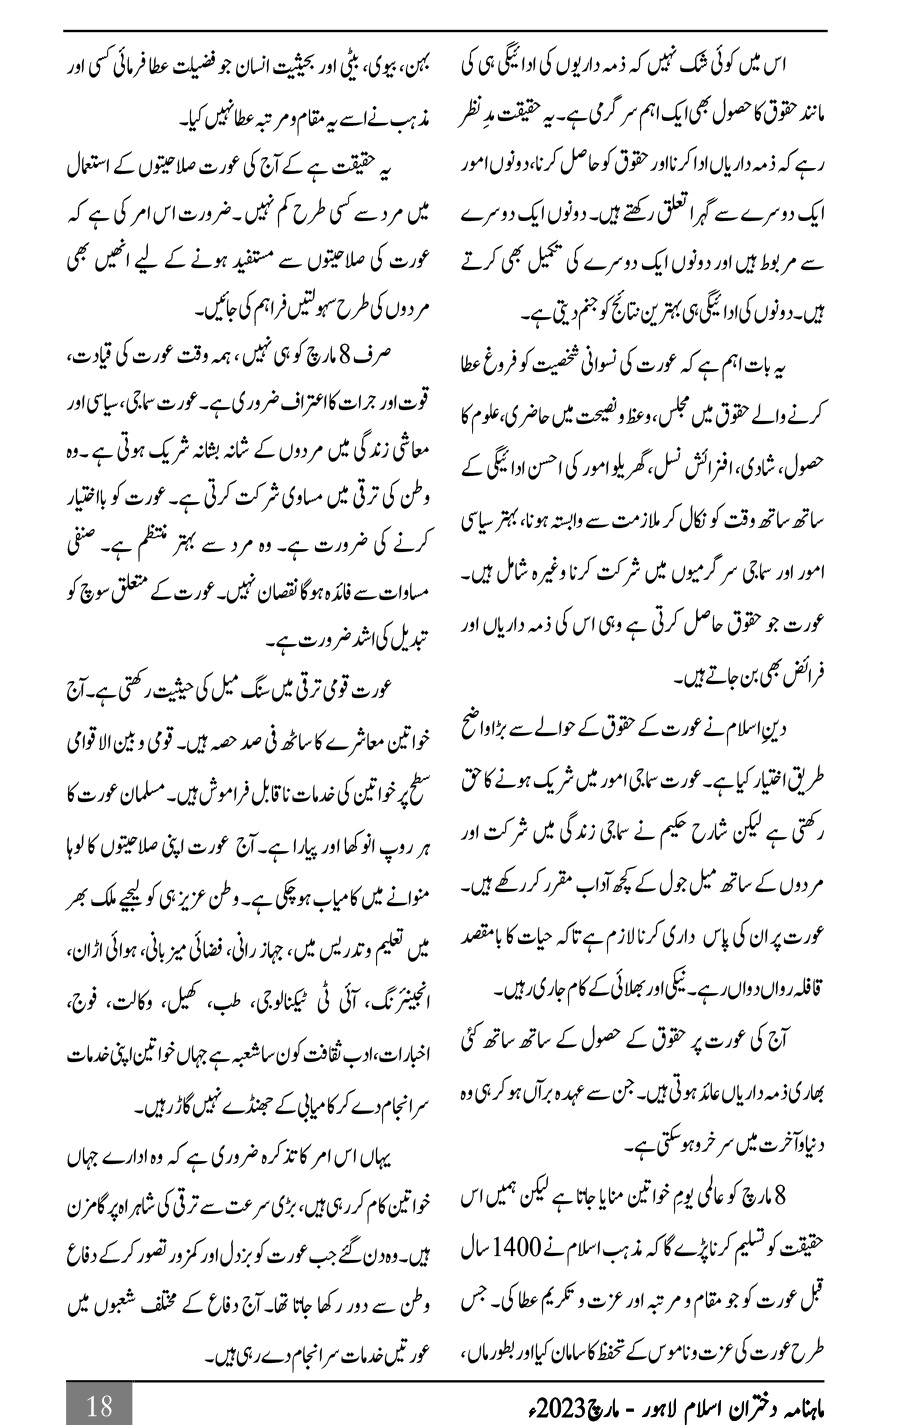 اس میں کوئی شک نہیں کہ ذمہ داریوں کی ادائیگی ہی کی
مانند حقوق کا حصول بھی ایک اہم سرگرمی ہے۔ یہ حقیقت مدِ نظر
رہے کہ ذمہ داریاں ادا کرنا اور حقوق کو حاصل کرنا، دونوں امور
ایک دوسرے سے گہرا تعلق رکھتے ہیں۔ دونوں ایک دوسرے
سے مربوط ہیں اور دونوں ایک دوسرے کی تکمیل بھی کرتے
ہیں۔ دونوں کی ادائیگی ہی بہترین نتائج کو جنم دیتی ہے۔
یہ بات اہم ہے کہ عورت کی نسوانی شخصیت کو فروغ عطا
کرنے والے حقوق میں مجلس، وعظ و نصیحت میں حاضری، علوم کا
حصول، شادی، افزائش نسل، گھریلو امور کی احسن ادائیگی کے
ساتھ ساتھ وقت کو نکال کر ملازمت سے وابستہ ہونا، بہتر سیاسی
امور اور سماجی سرگرمیوں میں شرکت کرنا وغیرہ شامل ہیں۔
عورت جو حقوق حاصل کرتی ہے وہی اس کی ذمہ داریاں اور
فرائض بھی بن جاتے ہیں۔
دینِ اسلام نے عورت کے حقوق کے حوالے سے بڑا واضح
طریق اختیار کیا ہے۔ عورت سماجی امور میں شریک ہونے کا حق
رکھتی ہے لیکن شارح حکیم نے سماجی زندگی میں شرکت اور
مردوں کے ساتھ میل جول کے کچھ آداب مقرر کر رکھے ہیں۔
عورت پر ان کی پاس داری کرنا لازم ہے تاکہ حیات کا بامقصد
قافلہ رواں دواں رہے۔ نیکی اور بھلائی کے کام جاری رہیں۔
آج کی عورت پر حقوق کے حصول کے ساتھ ساتھ کئی
بھاری ذمہ داریاں عائد ہوتی ہیں۔ جن سے عہدہ برآں ہو کر ہی وہ
دنیا و آخرت میں سرخرو ہو سکتی ہے۔
8 مارچ کو عالمی یومِ خواتین منایا جاتا ہے لیکن ہمیں اس
حقیقت کو تسلیم کرنا پڑے گا کہ مذہب اسلام نے 1400 سال
قبل عورت کو جو مقام و مرتبہ اور عزت و تکریم عطا کی۔ جس
طرح عورت کی عزت و ناموس کے تحفظ کا سامان کیا اور بطور ماں،
بہن، بیوی، بیٹی اور بحیثیت انسان جو فضیلت عطا فرمائی کسی اور
مذہب نے اسے یہ مقام و مرتبہ عطا نہیں کیا۔
یہ حقیقت ہے کے آج کی عورت صلاحیتوں کے استعمال
میں مرد سے کسی طرح کم نہیں۔ ضرورت اس امر کی ہے کہ
عورت کی صلاحیتوں سے مستفید ہونے کے لیے انھیں بھی
مردوں کی طرح سہولتیں فراہم کی جائیں۔
صرف 8 مارچ کو ہی نہیں، ہمہ وقت عورت کی قیادت،
قوت اور جرات کا اعتراف ضروری ہے۔ عورت سماجی، سیاسی اور
معاشی زندگی میں مردوں کے شانہ بشانہ شریک ہوتی ہے۔ وہ
وطن کی ترقی میں مساوی شرکت کرتی ہے۔ عورت کو بااختیار
کرنے کی ضرورت ہے۔ وہ مرد سے بہتر منتظم ہے۔ صنفی
مساوات سے فائدہ ہوگا نقصان نہیں۔ عورت کے متعلق سوچ کو
تبدیل کی اشد ضرورت ہے۔
عورت قومی ترقی میں سنگ میل کی حیثیت رکھتی ہے۔ آج
خواتین معاشرے کا ساٹھ فی صد حصہ ہیں۔ قومی و بین الاقوامی
سطح پر خواتین کی خدمات ناقابل فراموش ہیں۔ مسلمان عورت کا
ہر روپ انوکھا اور پیارا ہے۔ آج عورت اپنی صلاحیتوں کا لوہا
منوانے میں کامیاب ہو چکی ہے۔ وطن عزیز ہی کو لیجیے ملک بھر
میں تعلیم و تدریس میں، جہاز رانی، فضائی میزبانی، ہوائی اڑان،
انجینئرنگ، آئی ٹی ٹیکنالوجی، طب، کھیل، وکالت، فوج،
اخبارات، ادب ثقافت کون سا شعبہ ہے جہاں خواتین اپنی خدمات
سرانجام دے کر کامیابی کے جھنڈے نہیں گاڑ رہیں۔
یہاں اس امر کا تذکرہ ضروری ہے کہ وہ ادارے جہاں
خواتین کام کر رہی ہیں، بڑی سرعت سے ترقی کی شاہراہ پر گامزن
ہیں۔ وہ دن گئے جب عورت کو بزدل اور کمزور تصور کر کے دفاع
وطن سے دور رکھا جاتا تھا۔ آج دفاع کے مختلف شعبوں میں
عورتیں خدمات سرانجام دے رہی ہیں۔
ماہنامہ دختران اسلام لاہور - مارچ 2023ء
18